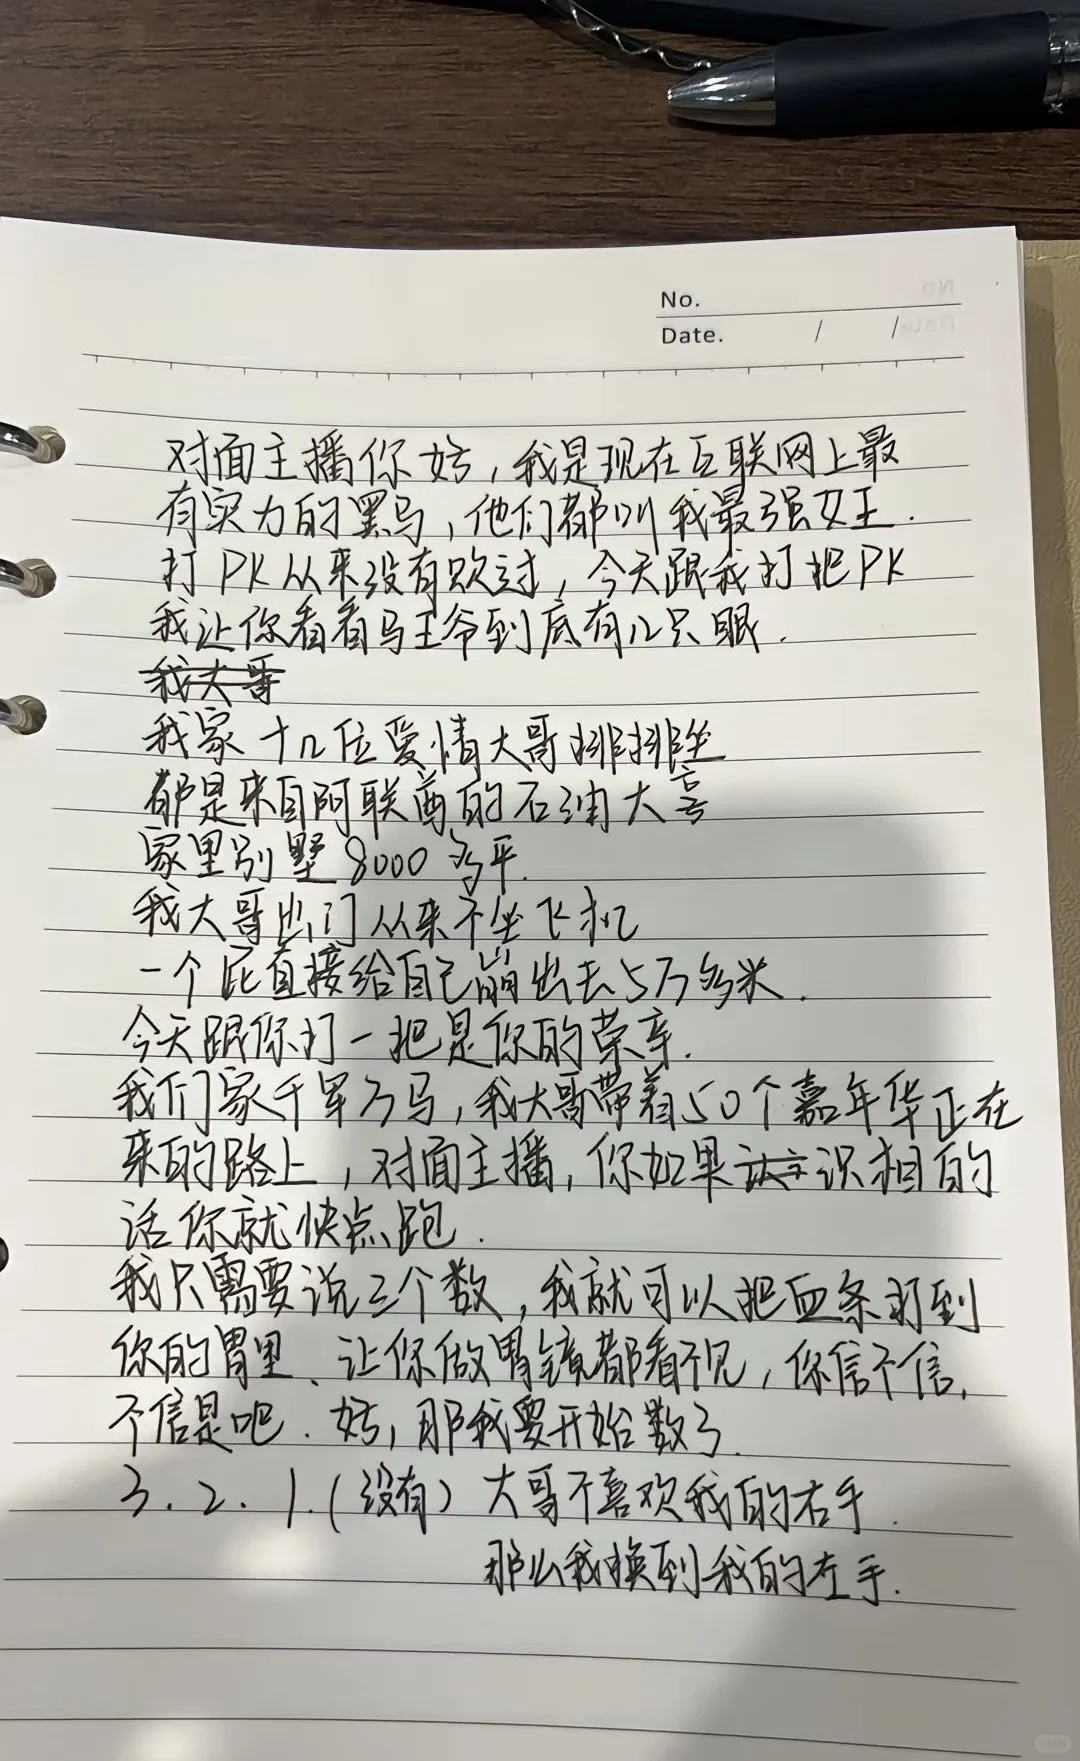 No.
Date. / /
对面主播你好，我是现在互联网上最
有实力的黑马，他们都叫我最强女王.
打PK从来没有败过，今天跟我打把PK
我让你看看马王爷到底有几只眼.
我大哥
我家十几位爱情大哥排排坐
都是来自阿联酋的石油大亨
家里别墅8000多平.
我大哥出门从来不坐飞机
一个屁直接给自己崩出去5万多米.
今天跟你打一把是你的荣幸.
我们家千军万马，我大哥带着50个嘉年华正在
来的路上，对面主播，你如果识相的
话你就快点跑.
我只需要说三个数，我就可以把血条打到
你的胃里、让你做胃镜都看不见，你信不信，
不信是吧.好，那我要开始数了.
3.2.1.(没有) 大哥不喜欢我的右手.
那么我换到我的左手.